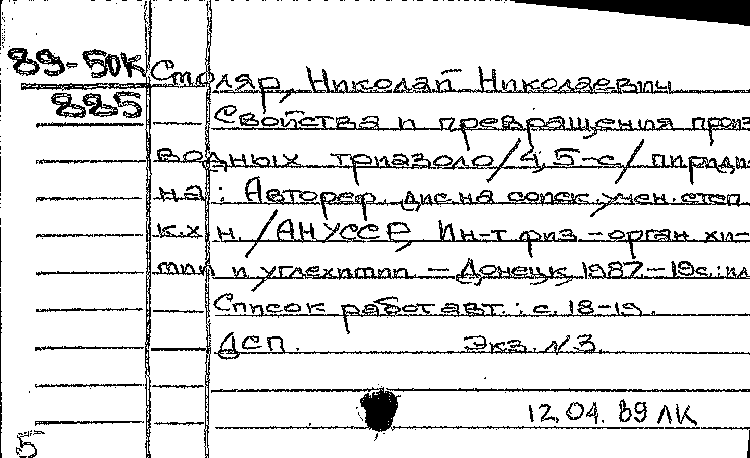 89-50К Столяр, Николай Николаевич
885 Свойства и превращения произ
водных триазоло/4,5-с/ пириди
на : Автореф. дис. на соиск. учен. степ.
к.х н. /АН УССР, Ин-т физ.-орган. хи-
мии и углехимии - Донецк, 1987.-19с.:ил
Список работ авт.: с. 18-19.
ДСП. Экз. №3.
12.04.89 ЛК
5